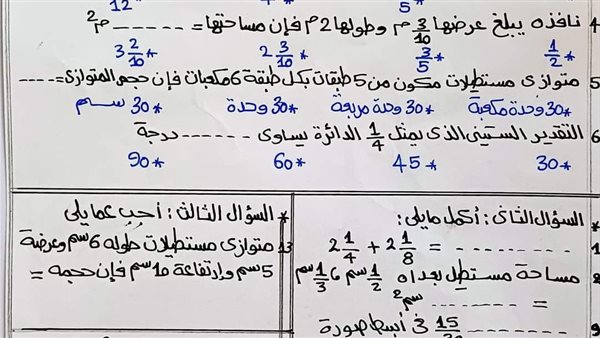 12 * 5 *
4 نافذه يبلغ عرضها 3/10 م وطولها 2 م فإن مساحتها = ------ م2
* 1/2 * 3/5 * 2 3/10 * 3 2/10
5 متوازى مستطيلات مكون من 5 طبقات بكل طبقة 6 مكعبات فإن حجم المتوازى = ----
* 30 وحدة مكعبة * 30 وحدة مربعة * 30 وحدة * 30 سم
6 التقدير الستينى الذى يمثل 1/4 الدائرة يساوى ------ درجة
* 30 * 45 * 60 * 90
* السؤال الثانى : أكمل مايلى :
2 1/4 + 2 1/8 = --------
8 مساحة مستطيل بعداه 1/2 سم 6 1/3 سم
= -------- سم2
9 -------- 3 15/ أبسط صورة
* السؤال الثالث : أجب عما يلى
13 متوازى مستطيلات طوله 6 سم وعرضة
5 سم وارتفاعة 10 سم فإن حجمه =